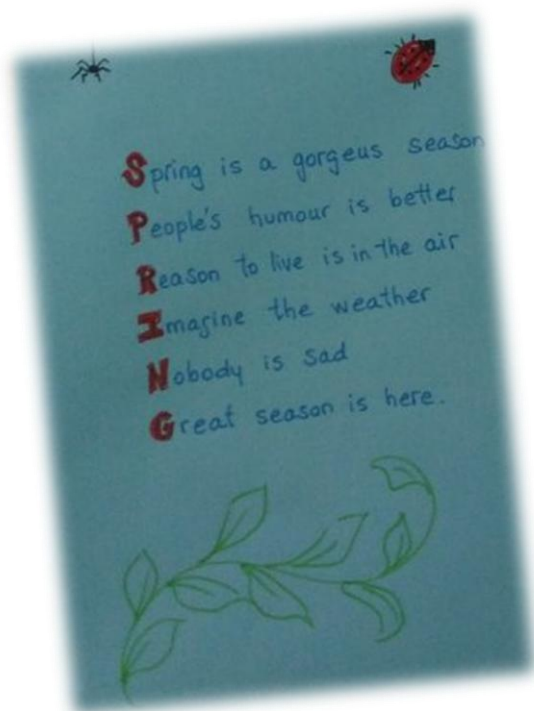 Spring is a gorgeus season
People's humour is better
Reason to live is in the air
Imagine the weather
Nobody is sad
Great season is here.